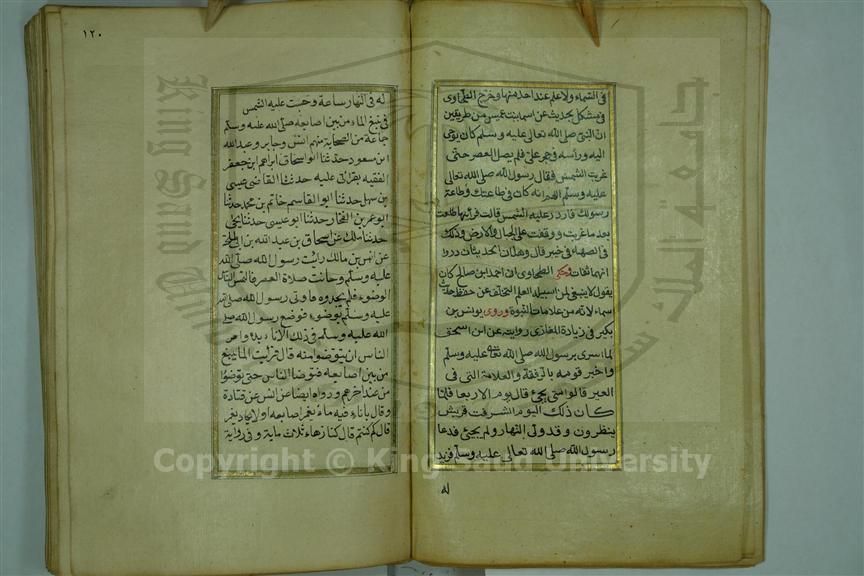 في السماء ولا علم عند احد منها وخرج الطحاوى
في مشكل بحديث عن اسماء بنت عميس من طريقين
ان النبي صلى الله تعالى عليه وسلم كان يوحى
اليه ورأسه في حجر علي فلم يصل العصر حتى
غربت الشمس فقال رسول الله صلى الله تعالى
عليه وسلم اللهم انه كان في طاعتك وطاعة
رسولك فاردد عليه الشمس قالت فرأيتها طلعت
بعد ما غربت ووقفت على الجبال والارض وذلك
في الصهباء في خيبر قال وهذان الحديثان
انهما ثقات وحكى الطحاوى ان احمد بن صالح كان
يقول لا ينبغي لمن سبيله العلم التخلف عن حفظ حديث
سماء لانه من علامات النبوة وروى يونس بن
بكير في زيادة المغازى روايته عن ابن اسحق
لما اسرى برسول الله صلى الله تعالى عليه وسلم
واخبر قومه بالرفقة والعلامة التي في
العير قالوا متى يجئ قال يوم الاربعا فلما
كان ذلك اليوم اشرفت قريش
ينظرون وقد ولى النهار ولم يجئ فدعا
رسول الله صلى الله تعالى عليه وسلم فزيد
له
١٢٠
له في النهار ساعة وحبست عليه الشمس
في نبع الماء من بين اصابعه صلى الله عليه وسلم
جماعة من الصحابة منهم انس وجابر وعبد الله
ابن مسعود حدثنا ابو اسحاق ابراهيم ابن جعفر
الفقيه بقرائتى عليه حدثنا القاضى عيسى
بن سهل حدثنا ابو القاسم خاتم بن محمد حدثنا
ابو عمر بن الفخار حدثنا ابو عيسى حدثنا يحيى
حدثنا ملك عن اسحاق بن عبد الله بن ابي طلحة
عن انس بن مالك رايت رسول الله صلى الله
عليه وسلم وحانت صلاة العصر فالتمس الناس
الوضوء فلم يجدوه فاوتى رسول الله صلى
عليه وسلم بوضوء فوضع رسول الله صلى
الله عليه وسلم في ذلك الاناء يده وامر
الناس ان يتوضؤا منه قال فرأيت الما ينبع
من بين اصابعه فتوضا الناس حتى توضؤا
من عند اخرهم ورواه ايضا عن انس عن قتادة
وقال باناء فيه ماء يغمر اصابعه اولا يكاد يغمر
قال كم كنتم قال كنا زهاء ثلاث ماية وفي رواية
King Saud University
جامعة الملك
Copyright © King Saud University